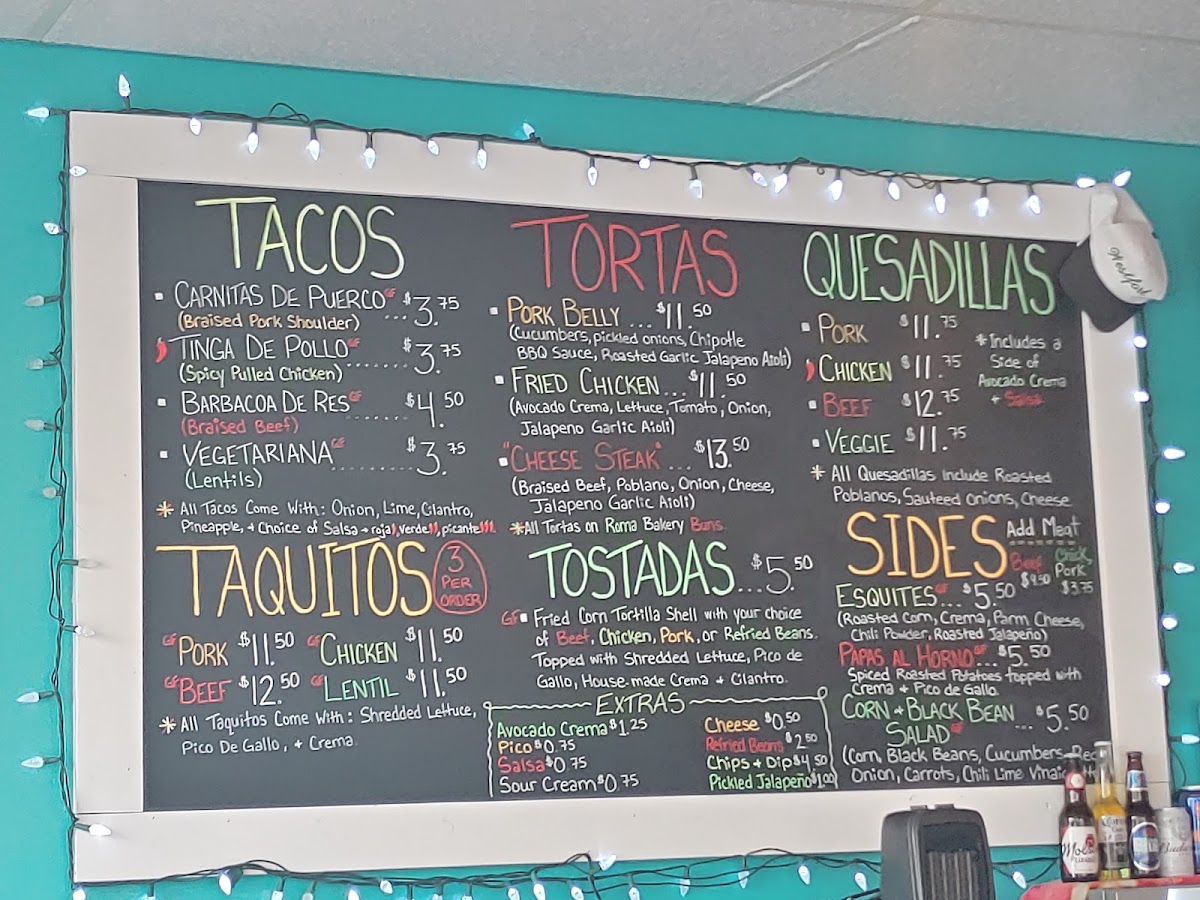 TACOS
CARNITAS DE PUERCO GF ... $3.75
(Braised Pork Shoulder)
TINGA DE POLLO GF ....... $3.75
(Spicy Pulled Chicken)
BARBACOA DE RES GF ....... $4.50
(Braised Beef)
VEGETARIANA GF ........ $3.75
(Lentils)
* All Tacos Come With: Onion, Lime, Cilantro,
Pineapple, + Choice of Salsa → roja, verde, picante
TAQUITOS
3
PER
ORDER
GF PORK $11.50 GF CHICKEN $11.50
GF BEEF $12.50 GF LENTIL $11.50
* All Taquitos Come With: Shredded Lettuce,
Pico De Gallo, + Crema.
TORTAS
PORK BELLY ... $11.50
(Cucumbers, pickled onions, Chipotle
BBQ Sauce, Roasted Garlic Jalapeno Aioli)
FRIED CHICKEN ... $11.50
(Avocado Crema, Lettuce, Tomato, Onion,
Jalapeno Garlic Aioli)
"CHEESE STEAK" ... $13.50
(Braised Beef, Poblano, Onion, Cheese,
Jalapeno Garlic Aioli)
*All Tortas on Roma Bakery Buns.
TOSTADAS ... $5.50
GF Fried Corn Tortilla Shell with your choice
of Beef, Chicken, Pork, or Refried Beans.
Topped with Shredded Lettuce, Pico de
Gallo, House-made Crema + Cilantro.
EXTRAS
Avocado Crema $1.25
Pico $0.75
Salsa $0.75
Sour Cream $0.75
Cheese $0.50
Refried Beans $2.50
Chips + Dip $4.50
Pickled Jalapeño $1.00
QUESADILLAS
PORK $11.75
CHICKEN $11.75
BEEF $12.75
VEGGIE $11.75
*Includes a
Side of
Avocado Crema
+ Salsa
* All Quesadillas Include Roasted
Poblanos, Sauteed Onions, Cheese
SIDES
Add Meat
Beef $4.50
Chick
Pork
$3.75
ESQUITES GF ... $5.50
(Roasted Corn, Crema, Parm Cheese,
Chili Powder, Roasted Jalapeño)
PAPAS AL HORNO GF ... $5.50
Spiced Roasted Potatoes topped with
Crema + Pico de Gallo.
CORN + BLACK BEAN
SALAD GF ... $5.50
(Corn, Black Beans, Cucumbers, Red
Onion, Carrots, Chili Lime